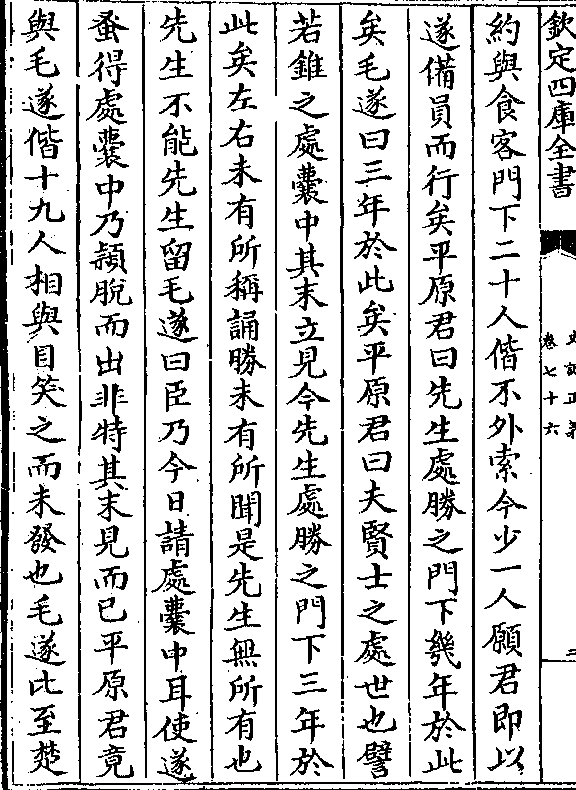 欽定四庫全書
史記正義
卷七十六
二
約與食客門下二十人偕不外索今少一人願君即以
遂備員而行矣平原君曰先生處勝之門下幾年於此
矣毛遂曰三年於此矣平原君曰夫賢士之處世也譬
若錐之處囊中其末立見今先生處勝之門下三年於
此矣左右未有所稱誦勝未有所聞是先生無所有也
先生不能先生留毛遂曰臣乃今日請處囊中耳使遂
蚤得處囊中乃穎脫而出非特其末見而已平原君竟
與毛遂偕十九人相與目笑之而未發也毛遂比至楚